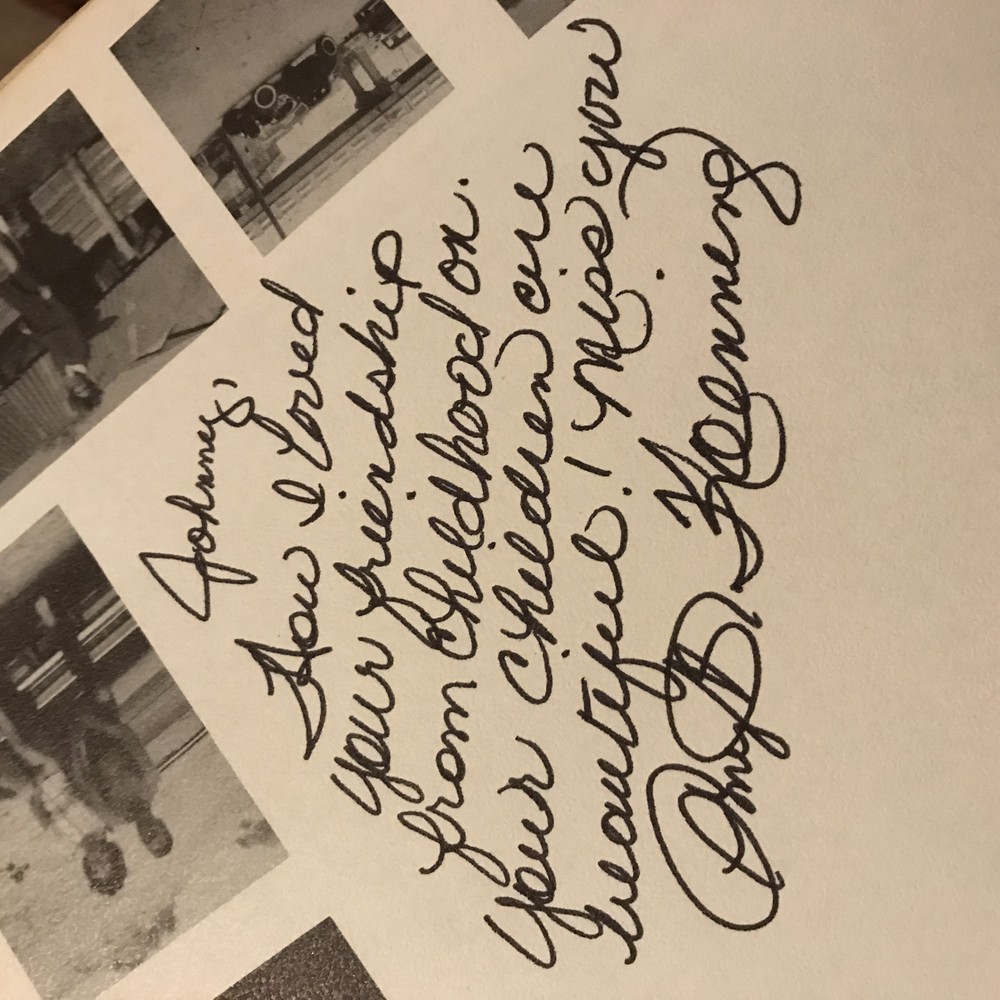 Johnny,
How I Loved
your friendship
from childhood on.
Your children are
beautiful! Miss you
Amy B. Koenning